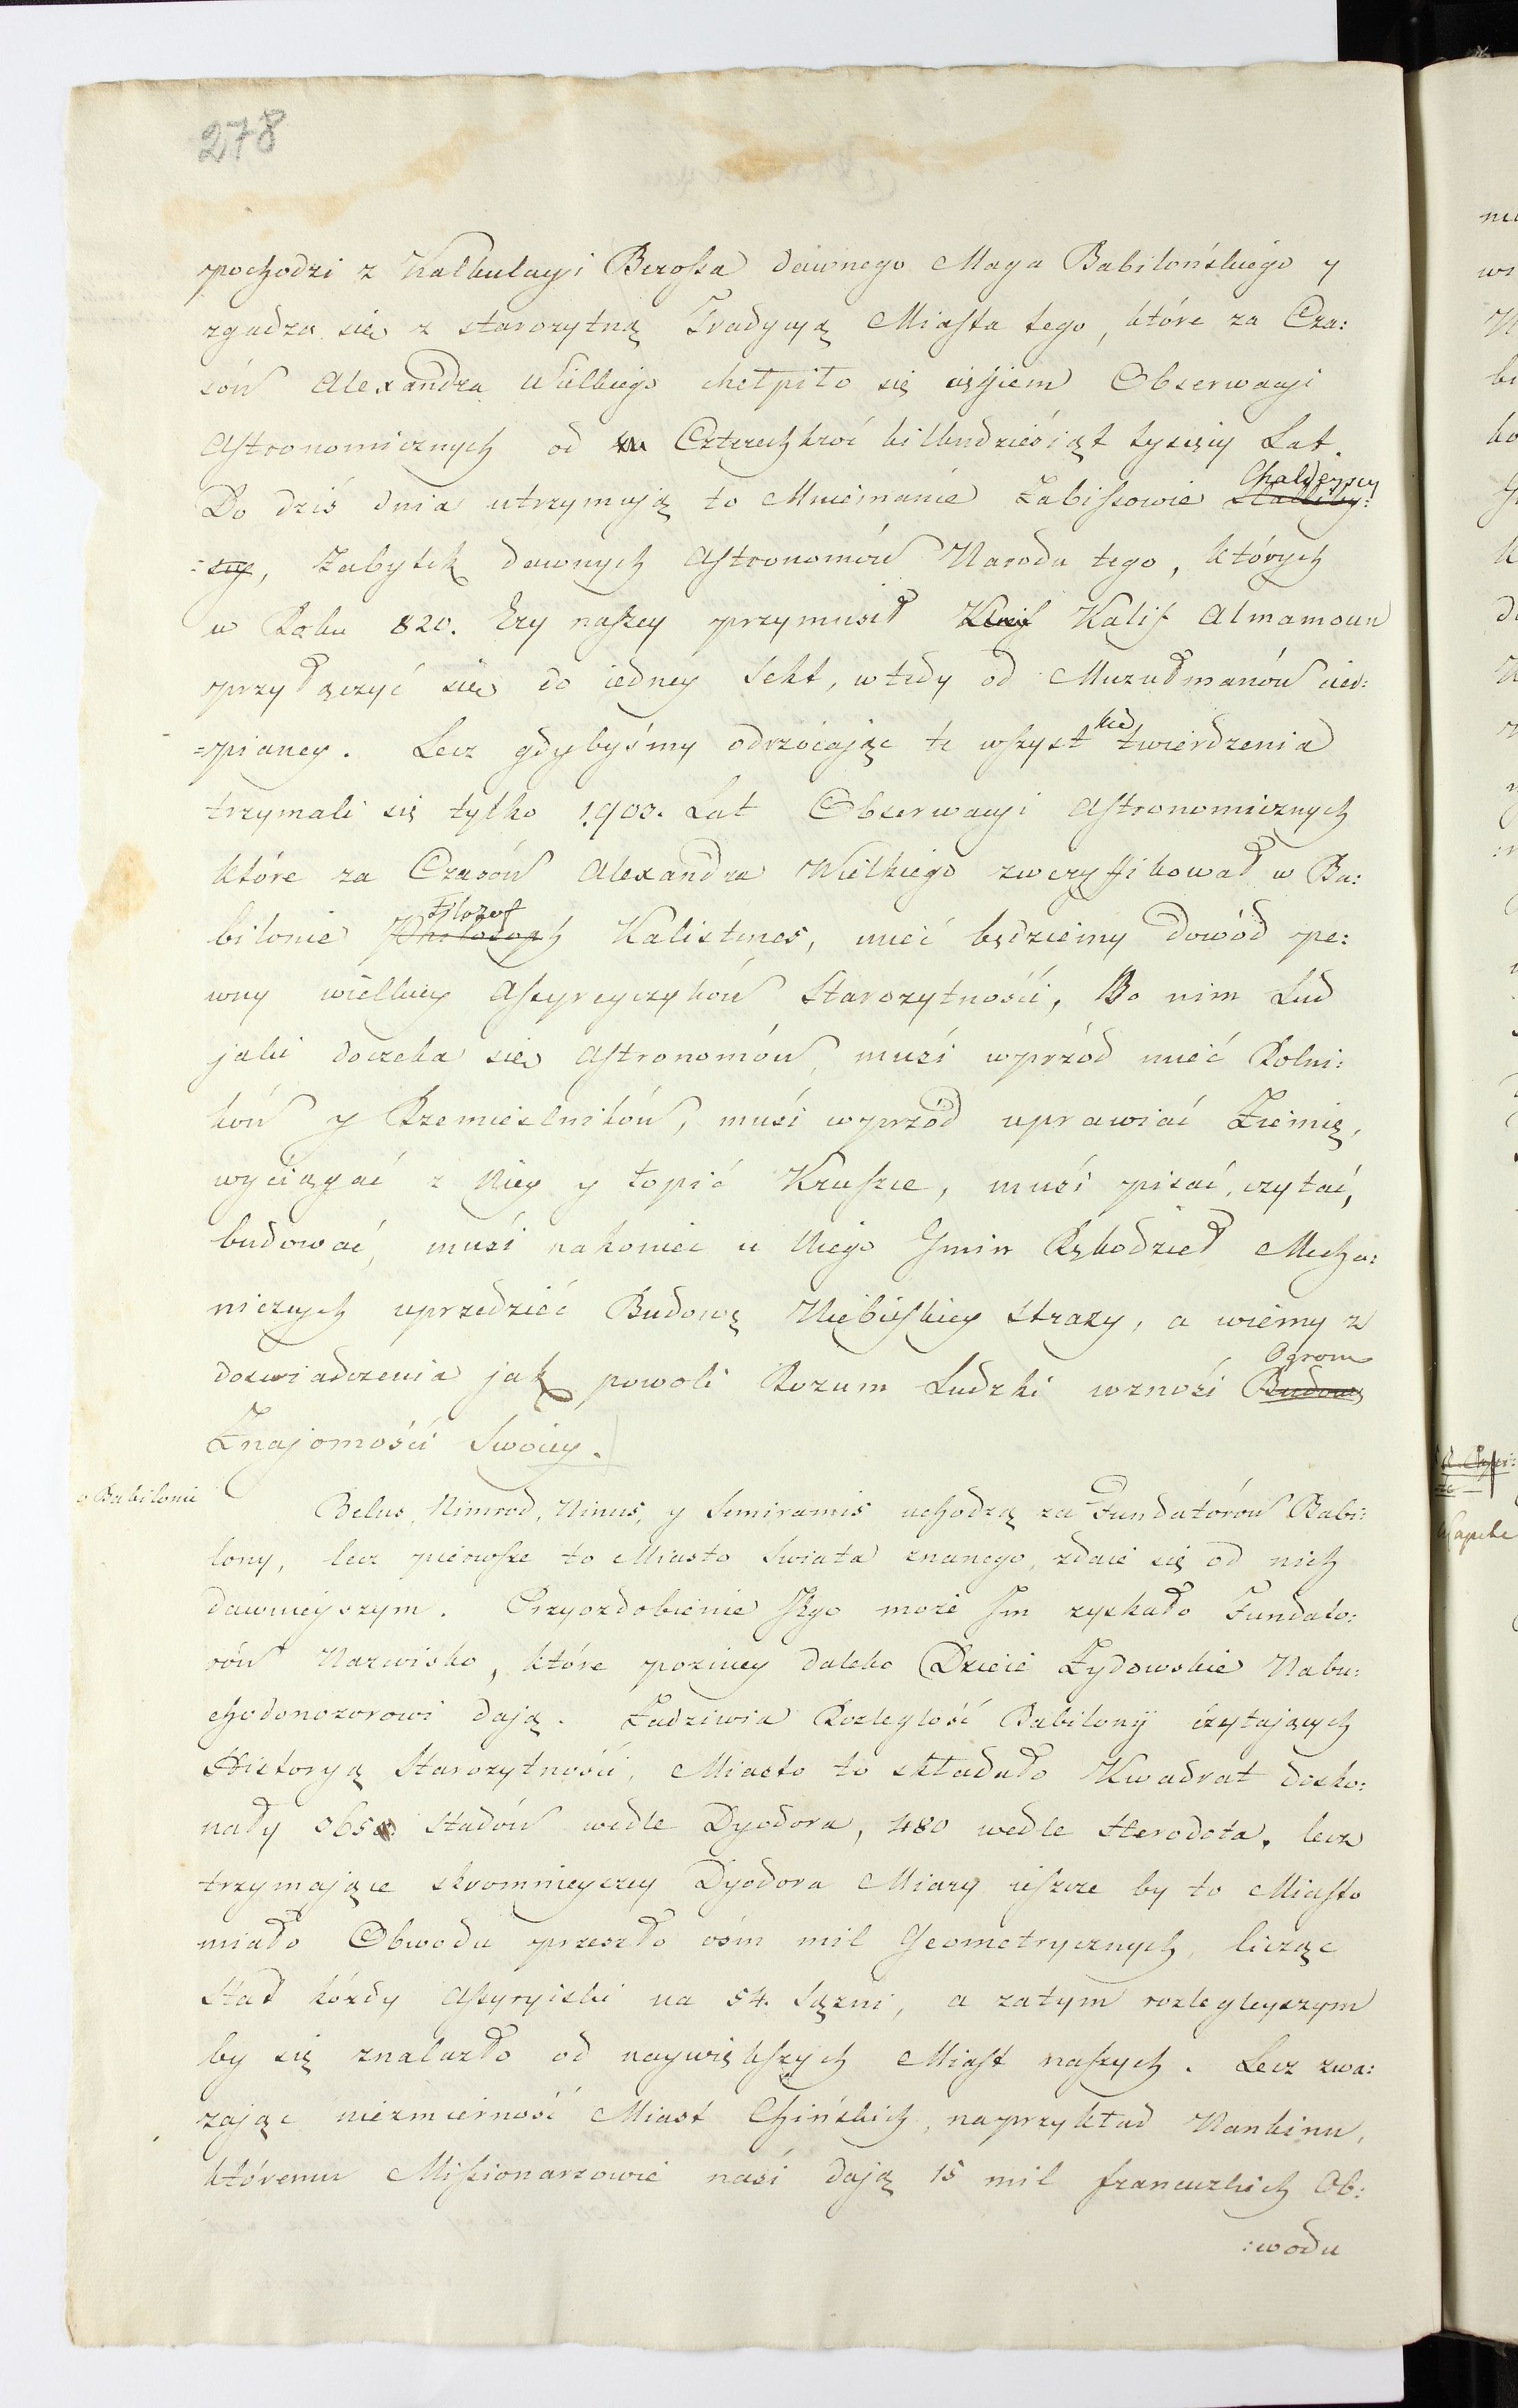 278
pochodzi z Kalkulacyi Berossa dawnego Maga Babilońskiego y
zgadza się z starozytną Tradycyą Miasta tego, które za Cza:
sów Alexandra Wielkiego chełpiło się ciągiem Obserwacyi
Astronomicznych od Czterechkroć kilkudziesiąt tysięcy Lat.
Chaldeyscy
Do dziś dnia utrzymują to Mniemanie Zabissowie
, Zabytek dawnych Astronomów Narodu tego, których
w Roku 820. Ery naszey przymusił Kalif Almamoun
przyłączyć się do iedney Sekt, wtedy od Muzułmanów cier:
=pianey. Lecz gdybyśmy odrzócając te wszystkie twierdzenia
trzymali się tylko 1900. Lat Obserwacyi Astronomicznych
które za Czasów Alexandra Wielkiego zweryfikował w Ba:
Filozof
bilonie Philosoph Kalistenes, mieć będziemy dowód pe:
wny wielkiey Assyryyczyków Starozytności, Bo nim Lud
jaki doczeka się Astronomów, musi wprzód mieć Rolni:
ków y Rzemieslników, musi wprzód uprawiać Ziemię,
wyciągać z Niey y topić Kruszce, musi pisać, czytać,
budować, musi nakoniec u Niego Gmin Rękodzieł Mecha:
nicznych uprzedzić Budowę Niebieskiey Strazy, a wiemy z
Ogrom
doswiadczenia jak powoli Rozum Ludzki wznosi Budowę
Znajomości Swoiey.
o Babilonie
Belus, Nimrod, Ninus, y Semiramis uchodzą za Fundatórów Babi:
lony, lecz pierwsze to Miasto Swiata znanego, zdaie się od nich
dawnieyszym. Przyozdobienie Jego może Im zyskało Fundato:
rów Nazwisko, które pozniey daleko Dzieie Zydowskie Nabu:
chodonozorowi dają. Zadziwia Rozległość Babilonÿ czytających
Historyą Starozytności, Miasto to składało Kwadrat dosko:
nały 365. Stadów wedle Dyodora, 480 wedle Herodota, lecz
trzymające skromnieyszey Dyodora Miary ieszcze by to Miasto
miało Obwodu przeszło ośm mil Geometrycznych, licząc
Stad kózdy Assyryiski na 54. Sązni, a zatym rozlegleyszym
by się znalazło od naywiększych Miast naszych. Lecz zwa:
zając niezmierność Miast Chińskich, naprzykład Nankinu,
któremu Missionarzowie nasi dają 15 mil francuzkich Ob:
:wodu